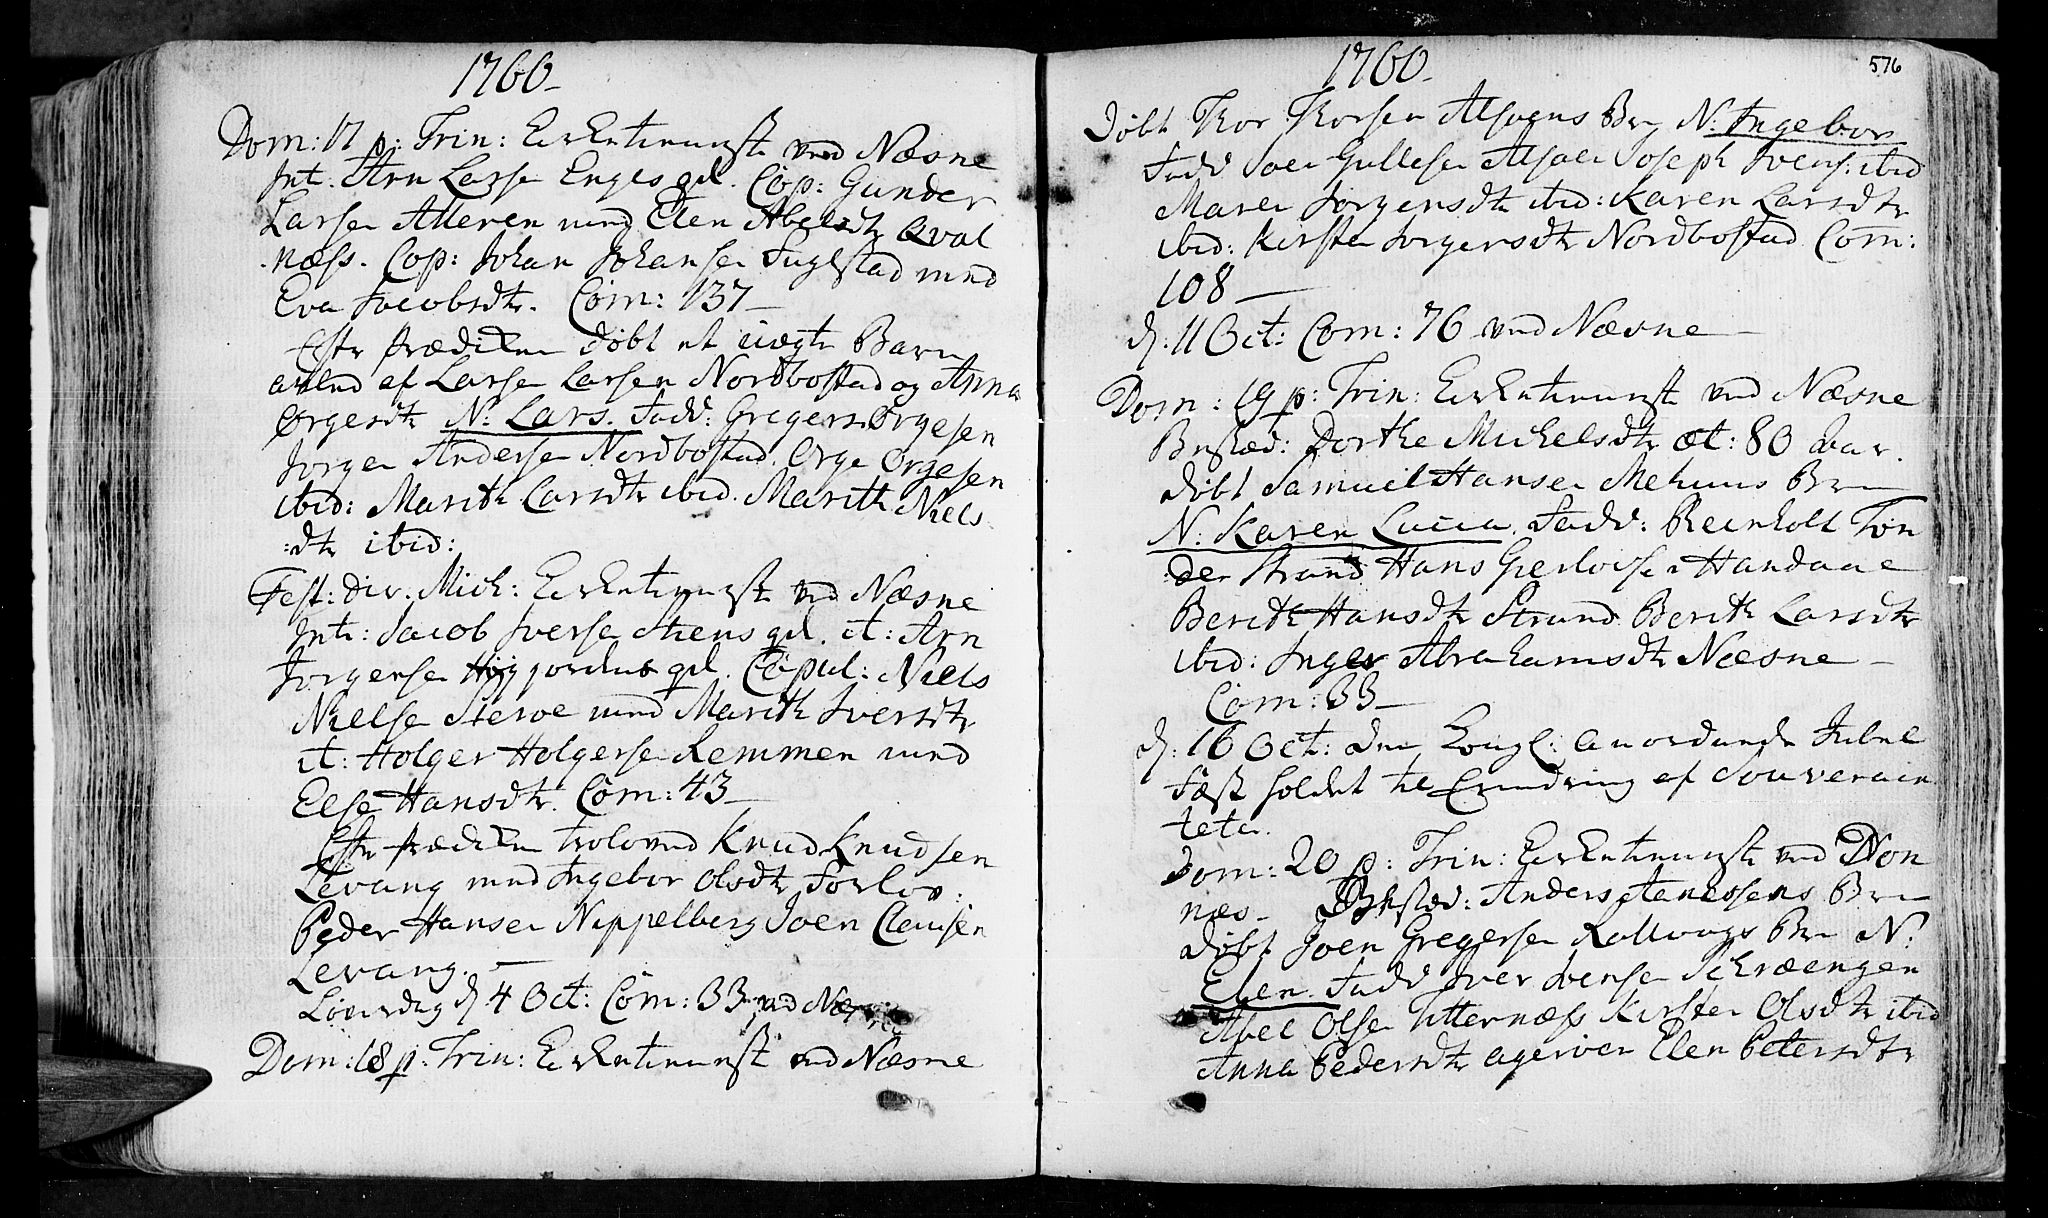 1760
Dom: 17 p: Trin: Kirketieneste ved Næsne
Int. Arn Larse Enges gl. Cop: Gunder
Larsen Alteren med Elen Abelsdtr Qval
næss. Cop: Johan Johansen Fuglstad med
Eva Jacobsdtr. Com: 137
Eftr prædiken døbt et uægte Barn
avled af Larse Larsen Nordbostad og Anna
Ørgesdtr N: Lars. Fadd: Gregers Ørgesen
Jørgen Andersen Nordbostad. Ørge Ørgesen
ibid: Marith Larsdtr ibid. Marith Niels
:dtr ibid:
Fest: div. Mich: Kirketieneste ved Næsne
Int: Jacob Iverse Stens gl. it: Arn
Jørgense Høgjordens gl. Copul: Niels
Nielse med Marith Iversdtr
it: Holger Holgerse Remmen med
Else Hansdtr. Com: 43
Eftr prædiken troloved Knud Knudsen
Levang med Ingebor Olsdtr Forlov:
Peder Hansen Nippelberg Joen Clemsen
Levang.
Løverdag d 4 Oct: Com: 33 ved Næsne
Dom: 18 p: Trin: Kirketieneste ved Næsne
1760
576
Døbt Thor Thorsen Alsoens Br N: Ingebor
Fadd Joen Gullesen Alsoen Joseph Ivers: ibid
Maren Jørgensdtr ibid: Karen Larsdtr
ibid: Kirsten Jørgensdtr Nordbostad Com:
108
d: 11 Oct: Com: 76 ved Næsne
Dom: 19 p: Trin: Kirketieneste ved Næsne
Begraved: Dorthe Michelsdtr æt: 80 Aar.
Døbt Samuel Hansen Mehuus Br
N: Karen Lucia. Fadd: Reinholt Ton
der Strand Hans Handaae
Berith Hansdtr Strand Berith Larsdtr
ibid: Inger Abrahamsdtr Næsne
Com: 33
d: 16 Oct: den Kongl: anordnede Jubel
Fæst holdet til Erindring af Souverain
teten.
Dom: 20 p: Trin: Kirketieneste ved Don
næs. Anders Br
Døbt Joen Gregersen Br N:
Elen. Fadd Iver Iversen
Abel Olsen Utternæss Kirsten Olsdtr ibid
Anna Pedersdtr Elen Petersdtr